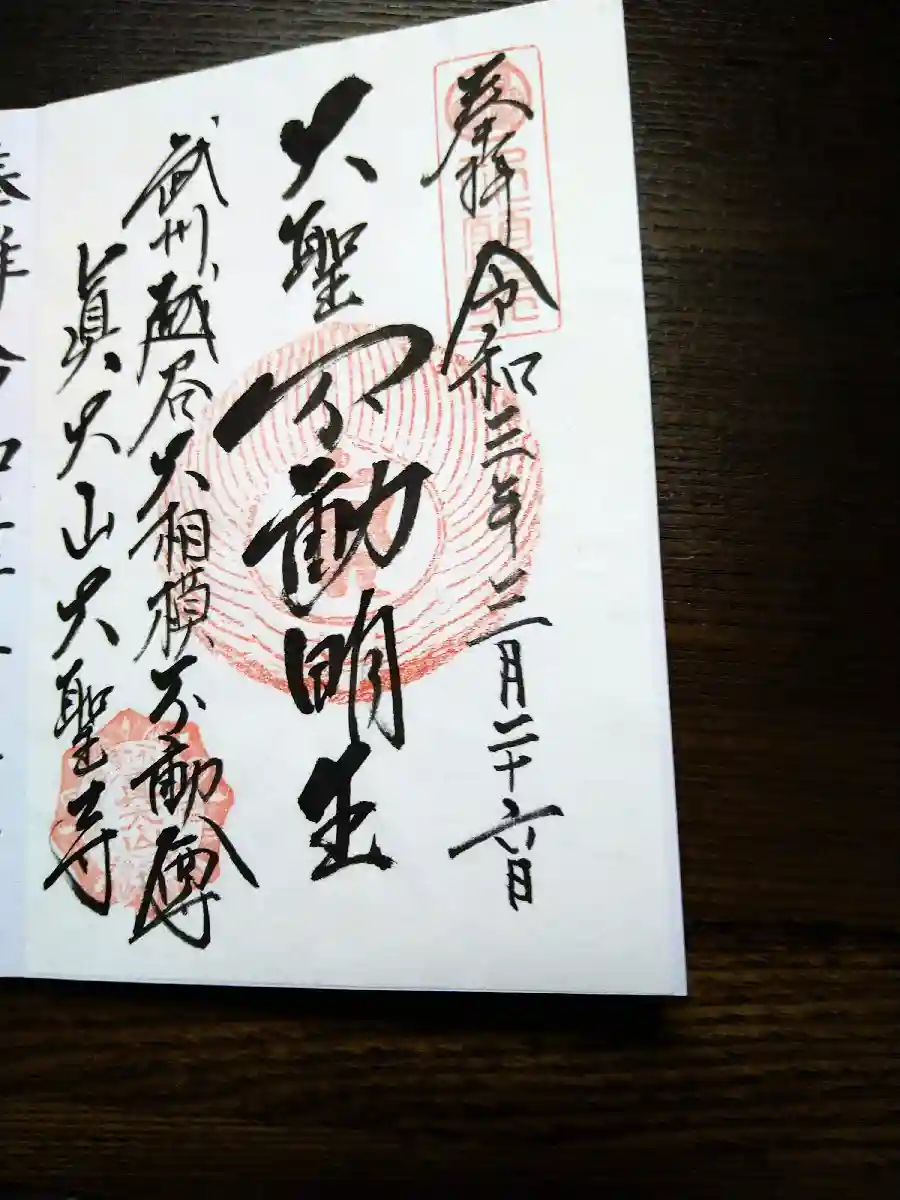 奉拝 令和二年二月二十六日
大聖不動明王
武州越谷大相模不動尊
眞大山大聖寺